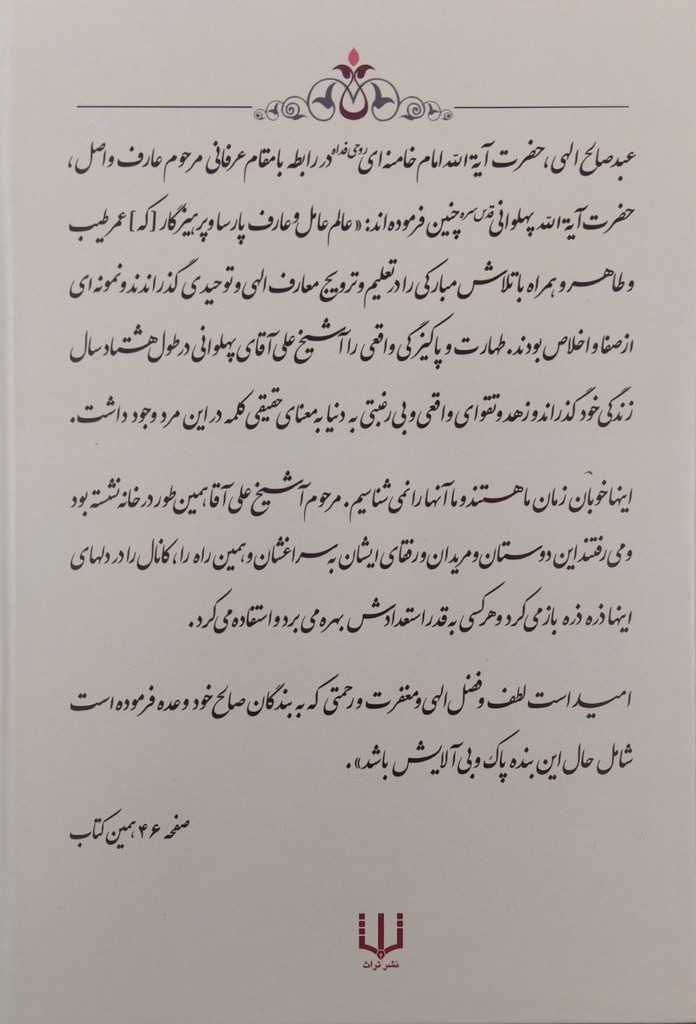 عبد صالح الهی، حضرت آیة الله امام خامنه ای روحی فداه در رابطه با مقام عرفانی مرحوم عارف واصل،
حضرت آیة الله پهلوانی قدس سره چنین فرموده اند: «عالم عامل و عارف پارسا و پرهیزگار [که] عمر طیب
و طاهر و همراه با تلاش مبارکی را در تعلیم و ترویج معارف الهی و توحیدی گذراندند و نمونه ای
از صفا و اخلاص بودند. طهارت و پاکیزگی واقعی را آشیخ علی آقای پهلوانی در طول هشتاد سال
زندگی خود گذراند و زهد و تقوای واقعی و بی رغبتی به دنیا به معنای حقیقی کلمه در این مرد وجود داشت.
اینها خوبان زمان ما هستند و ما آنها را نمی شناسیم. مرحوم آشیخ علی آقا همین طور در خانه نشسته بود
و می رفتند این دوستان و مریدان و رفقای ایشان به سراغشان و همین راه را، کانال را در دلهای
اینها ذره ذره باز می کرد و هر کسی به قدر استعدادش بهره می برد و استفاده می کرد.
امید است لطف و فضل الهی و مغفرت و رحمتی که به بندگان صالح خود وعده فرموده است
شامل حال این بنده پاک و بی آلایش باشد».
صفحه ۴۶ همین کتاب
نشر تراث